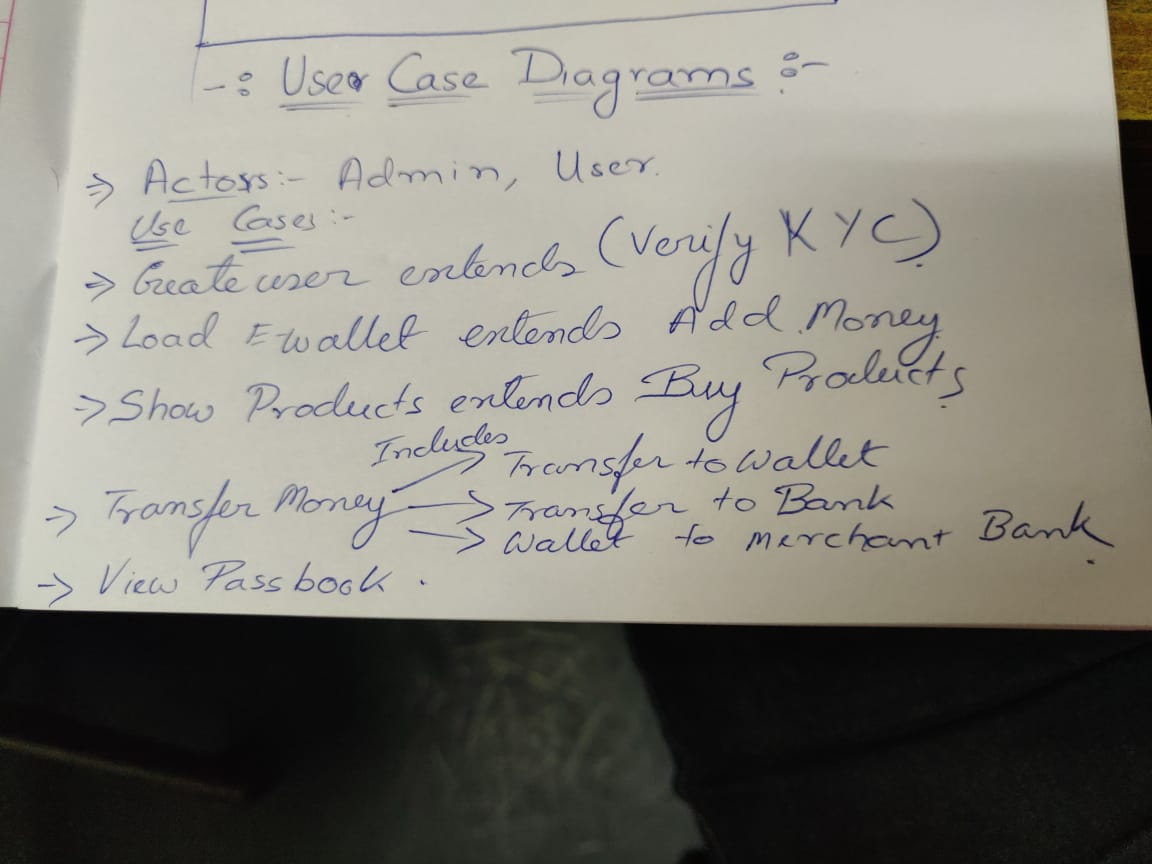 -: User Case Diagrams :-
⇒ Actors:- Admin, User.
Use Cases:-
⇒ Create user extends (Verify KYC).
→ Load E-wallet extends Add Money.
→ Show Products extends Buy Products.
Includes
Transfer to Wallet
→ Transfer Money → Transfer to Bank
→ Wallet to Merchant Bank.
→ View Passbook.